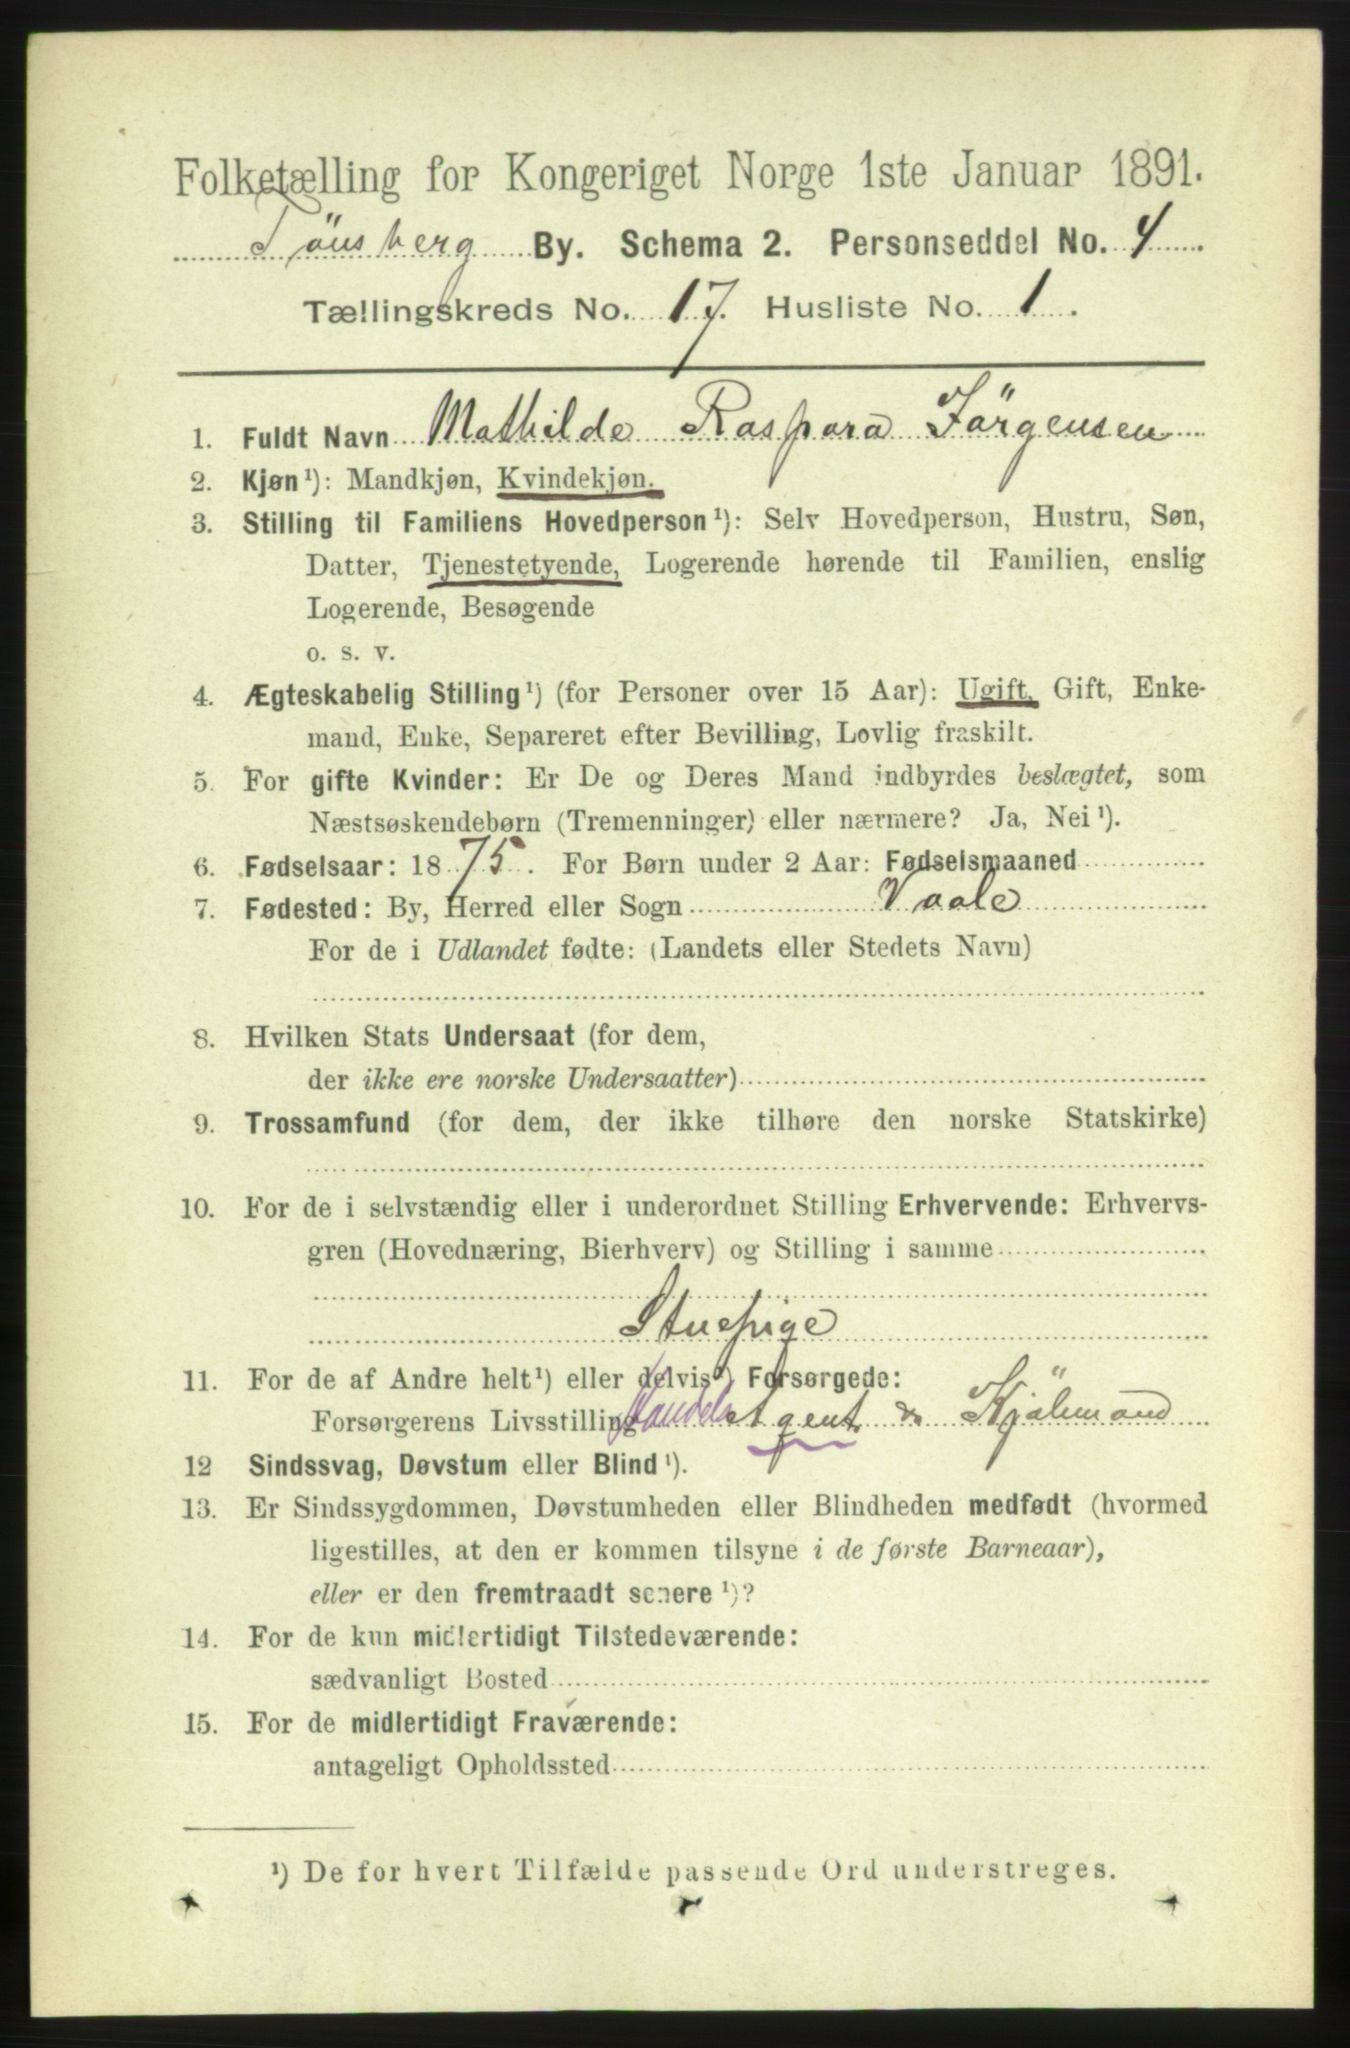 Folketælling for Kongeriget Norge 1ste Januar 1891.
Tönsberg By. Schema 2. Personseddel No. 4
Tællingskreds No. 17. Husliste No. 1.
1. Fuldt Navn Mathilde Raspara Jörgensen
2. Kjøn¹): Mandkjøn, Kvindekjøn.
3. Stilling til Familiens Hovedperson¹): Selv Hovedperson, Hustru, Søn,
Datter, Tjenestetyende, Logerende hørende til Familien, enslig
Logerende, Besøgende
o. s. v.
4. Ægteskabelig Stilling¹) (for Personer over 15 Aar): Ugift, Gift, Enke-
mand, Enke, Separeret efter Bevilling, Lovlig fraskilt.
5. For gifte Kvinder: Er De og Deres Mand indbyrdes beslægtet, som
Næstsøskendebørn (Tremenninger) eller nærmere? Ja, Nei¹).
6. Fødselsaar: 1875. For Børn under 2 Aar: Fødselsmaaned
7. Fødested: By, Herred eller Sogn Vaale
For de i Udlandet fødte: (Landets eller Stedets Navn)
8. Hvilken Stats Undersaat (for dem,
der ikke ere norske Undersaatter)
9. Trossamfund (for dem, der ikke tilhøre den norske Statskirke)
10. For de i selvstændig eller i underordnet Stilling Erhvervende: Erhvervs-
gren (Hovednæring, Bierhverv) og Stilling i samme
Stuepige
11. For de af Andre helt¹) eller delvis¹) Forsørgede:
Forsørgerens Livsstilling Handels Agent & Kjölmand
12 Sindssvag, Døvstum eller Blind¹).
13. Er Sindssygdommen, Døvstumheden eller Blindheden medfødt (hvormed
ligestilles, at den er kommen tilsyne i de første Barneaar),
eller er den fremtraadt senere¹)?
14. For de kun midlertidigt Tilstedeværende:
sædvanligt Bosted
15. For de midlertidigt Fraværende:
antageligt Opholdssted
¹) De for hvert Tilfælde passende Ord understreges.